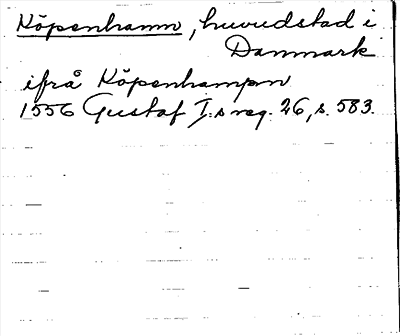 Köpenhamn, huvudstad i
Danmark
ifrå Köpenhampn
1556 Gustaf I:s reg. 26, s. 583.